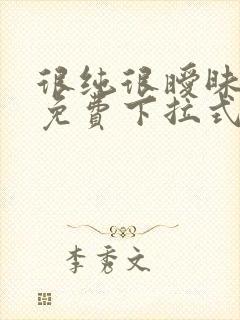 很纯很暧昧
免費下拉式
李秀文